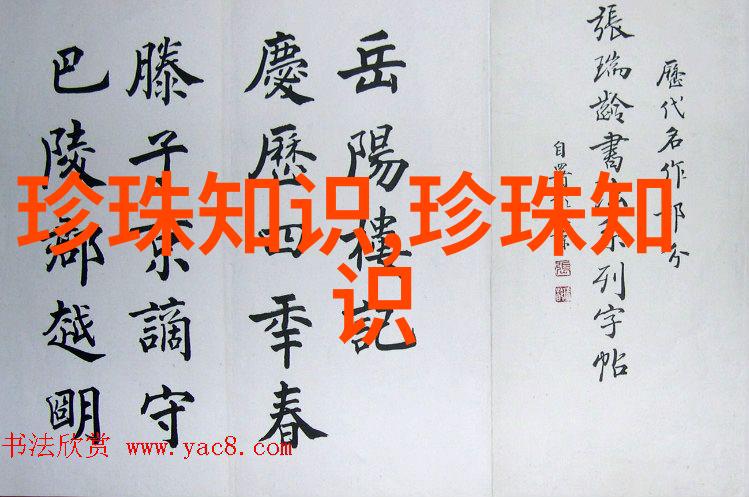 歷代名作部分
張瑞齡書法系列字帖
自署
岳陽樓記
慶歷四年春
滕子京謫守
巴陵郡越明
珍珠知识,珍珠知
识
书法欣赏 www.yac8.com